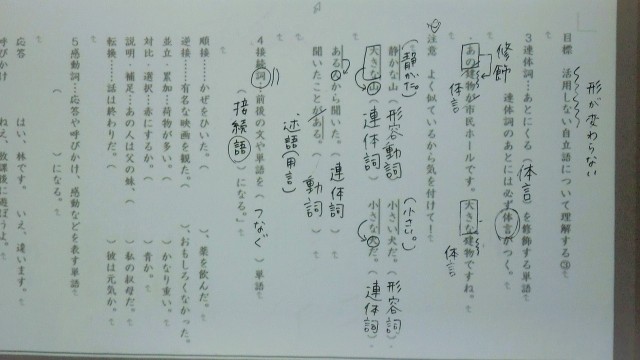 形が変わらない
目標 活用しない自立語について理解する③
3 連体詞…あとにくる(体言)を修飾する単語
連体詞のあとには必ず体言がつく。
修飾
あの建物が市民ホールです。 大きな建物ですね。
体言 体言
注意 よく似ているから気を付けて!
(静かだ) (小さい。)
静かな山(形容動詞) 小さい犬だ。(形容詞)
大きな山(連体詞) 小さな犬だ。(連体詞)
ある人から聞いた。(連体詞)
聞いたことがある。(動詞)
述語(用言)
4 接続詞…前後の文や単語を(つなぐ)単語
(接続語)になる。
順接……かぜをひいた。( )、薬を飲んだ。
逆接……有名な映画を観た。( )、おもしろくなかった。
並立・累加…荷物が多い。( )かなり重い。
対比・選択…赤にするか。( )青か。
説明・補足…あの人は父の妹、( )私の叔母だ。
転換……話は終わりだ。( )彼は元気か。
5 感動詞…応答や呼びかけ、感動などを表す単語
( )になる。
応答 はい、林です。 いえ、違います。
呼びかけ ねえ、放課後に遊ぼうよ。